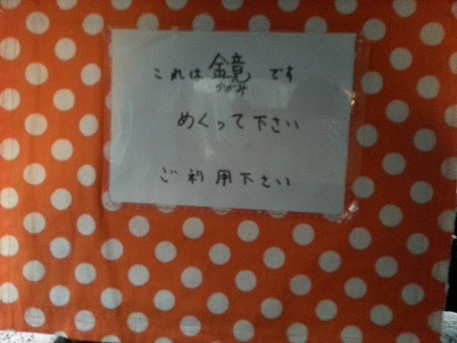 これは鏡です
かがみ
めくって下さい
ご利用下さい